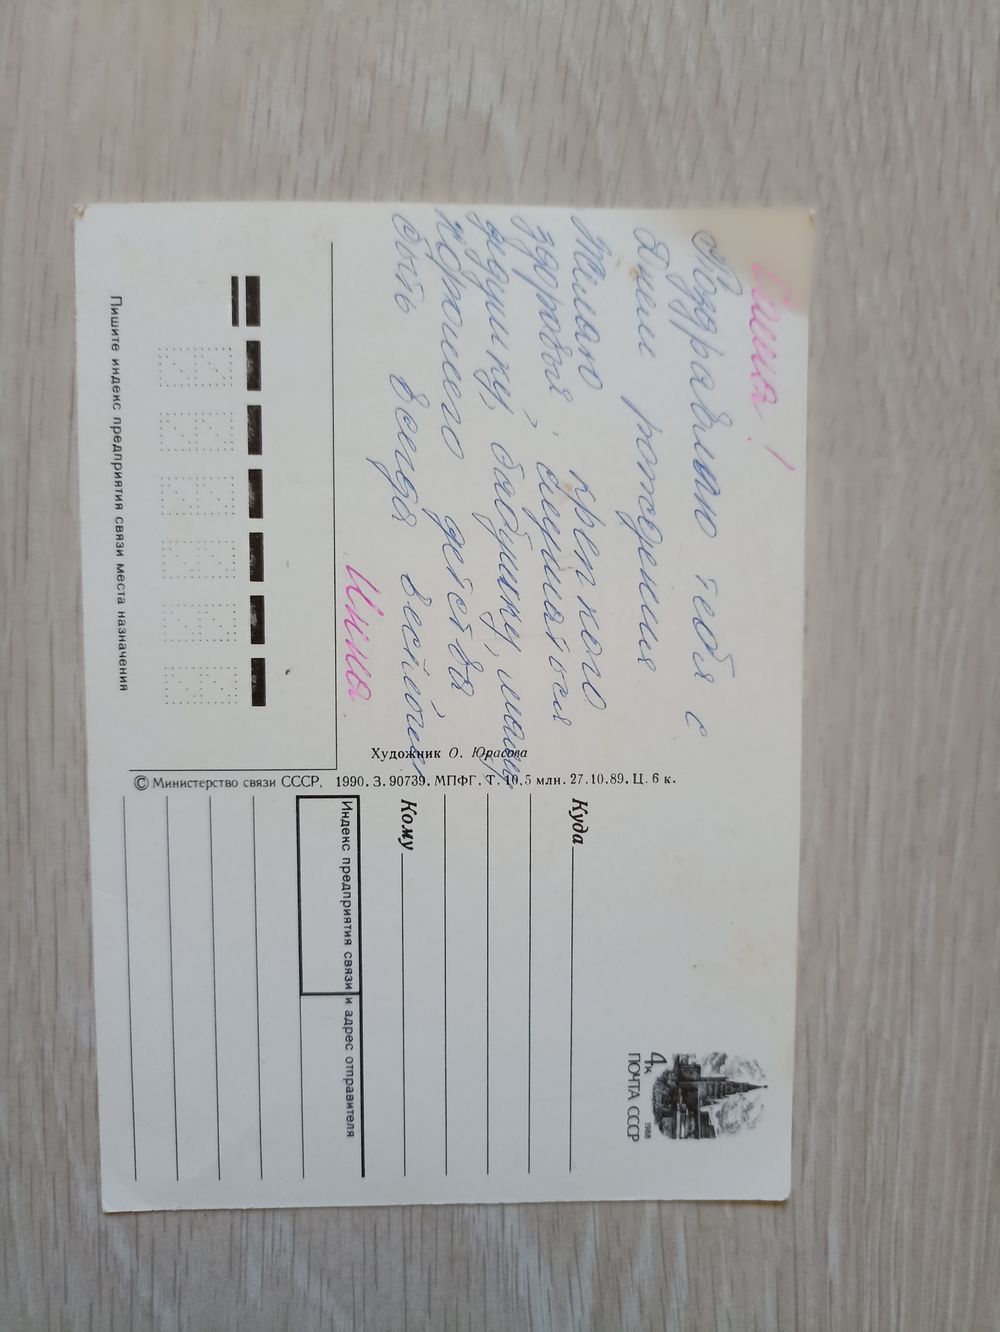 Саша!
Поздравляю тебя с
Днем рождения
Желаю крепкого
здоровья, слушаться
дедушку, бабушку, маму,
хорошего детства
быть всегда весёлым
Инна
Пишите индекс предприятия связи места назначения
Художник О. Юрасова
© Министерство связи СССР, 1990. З. 90739. МПФГ. Т. 10,5 млн. 27.10.89. Ц. 6 к.
4к
1988
ПОЧТА СССР
Куда
Кому
Индекс предприятия связи и адрес отправителя